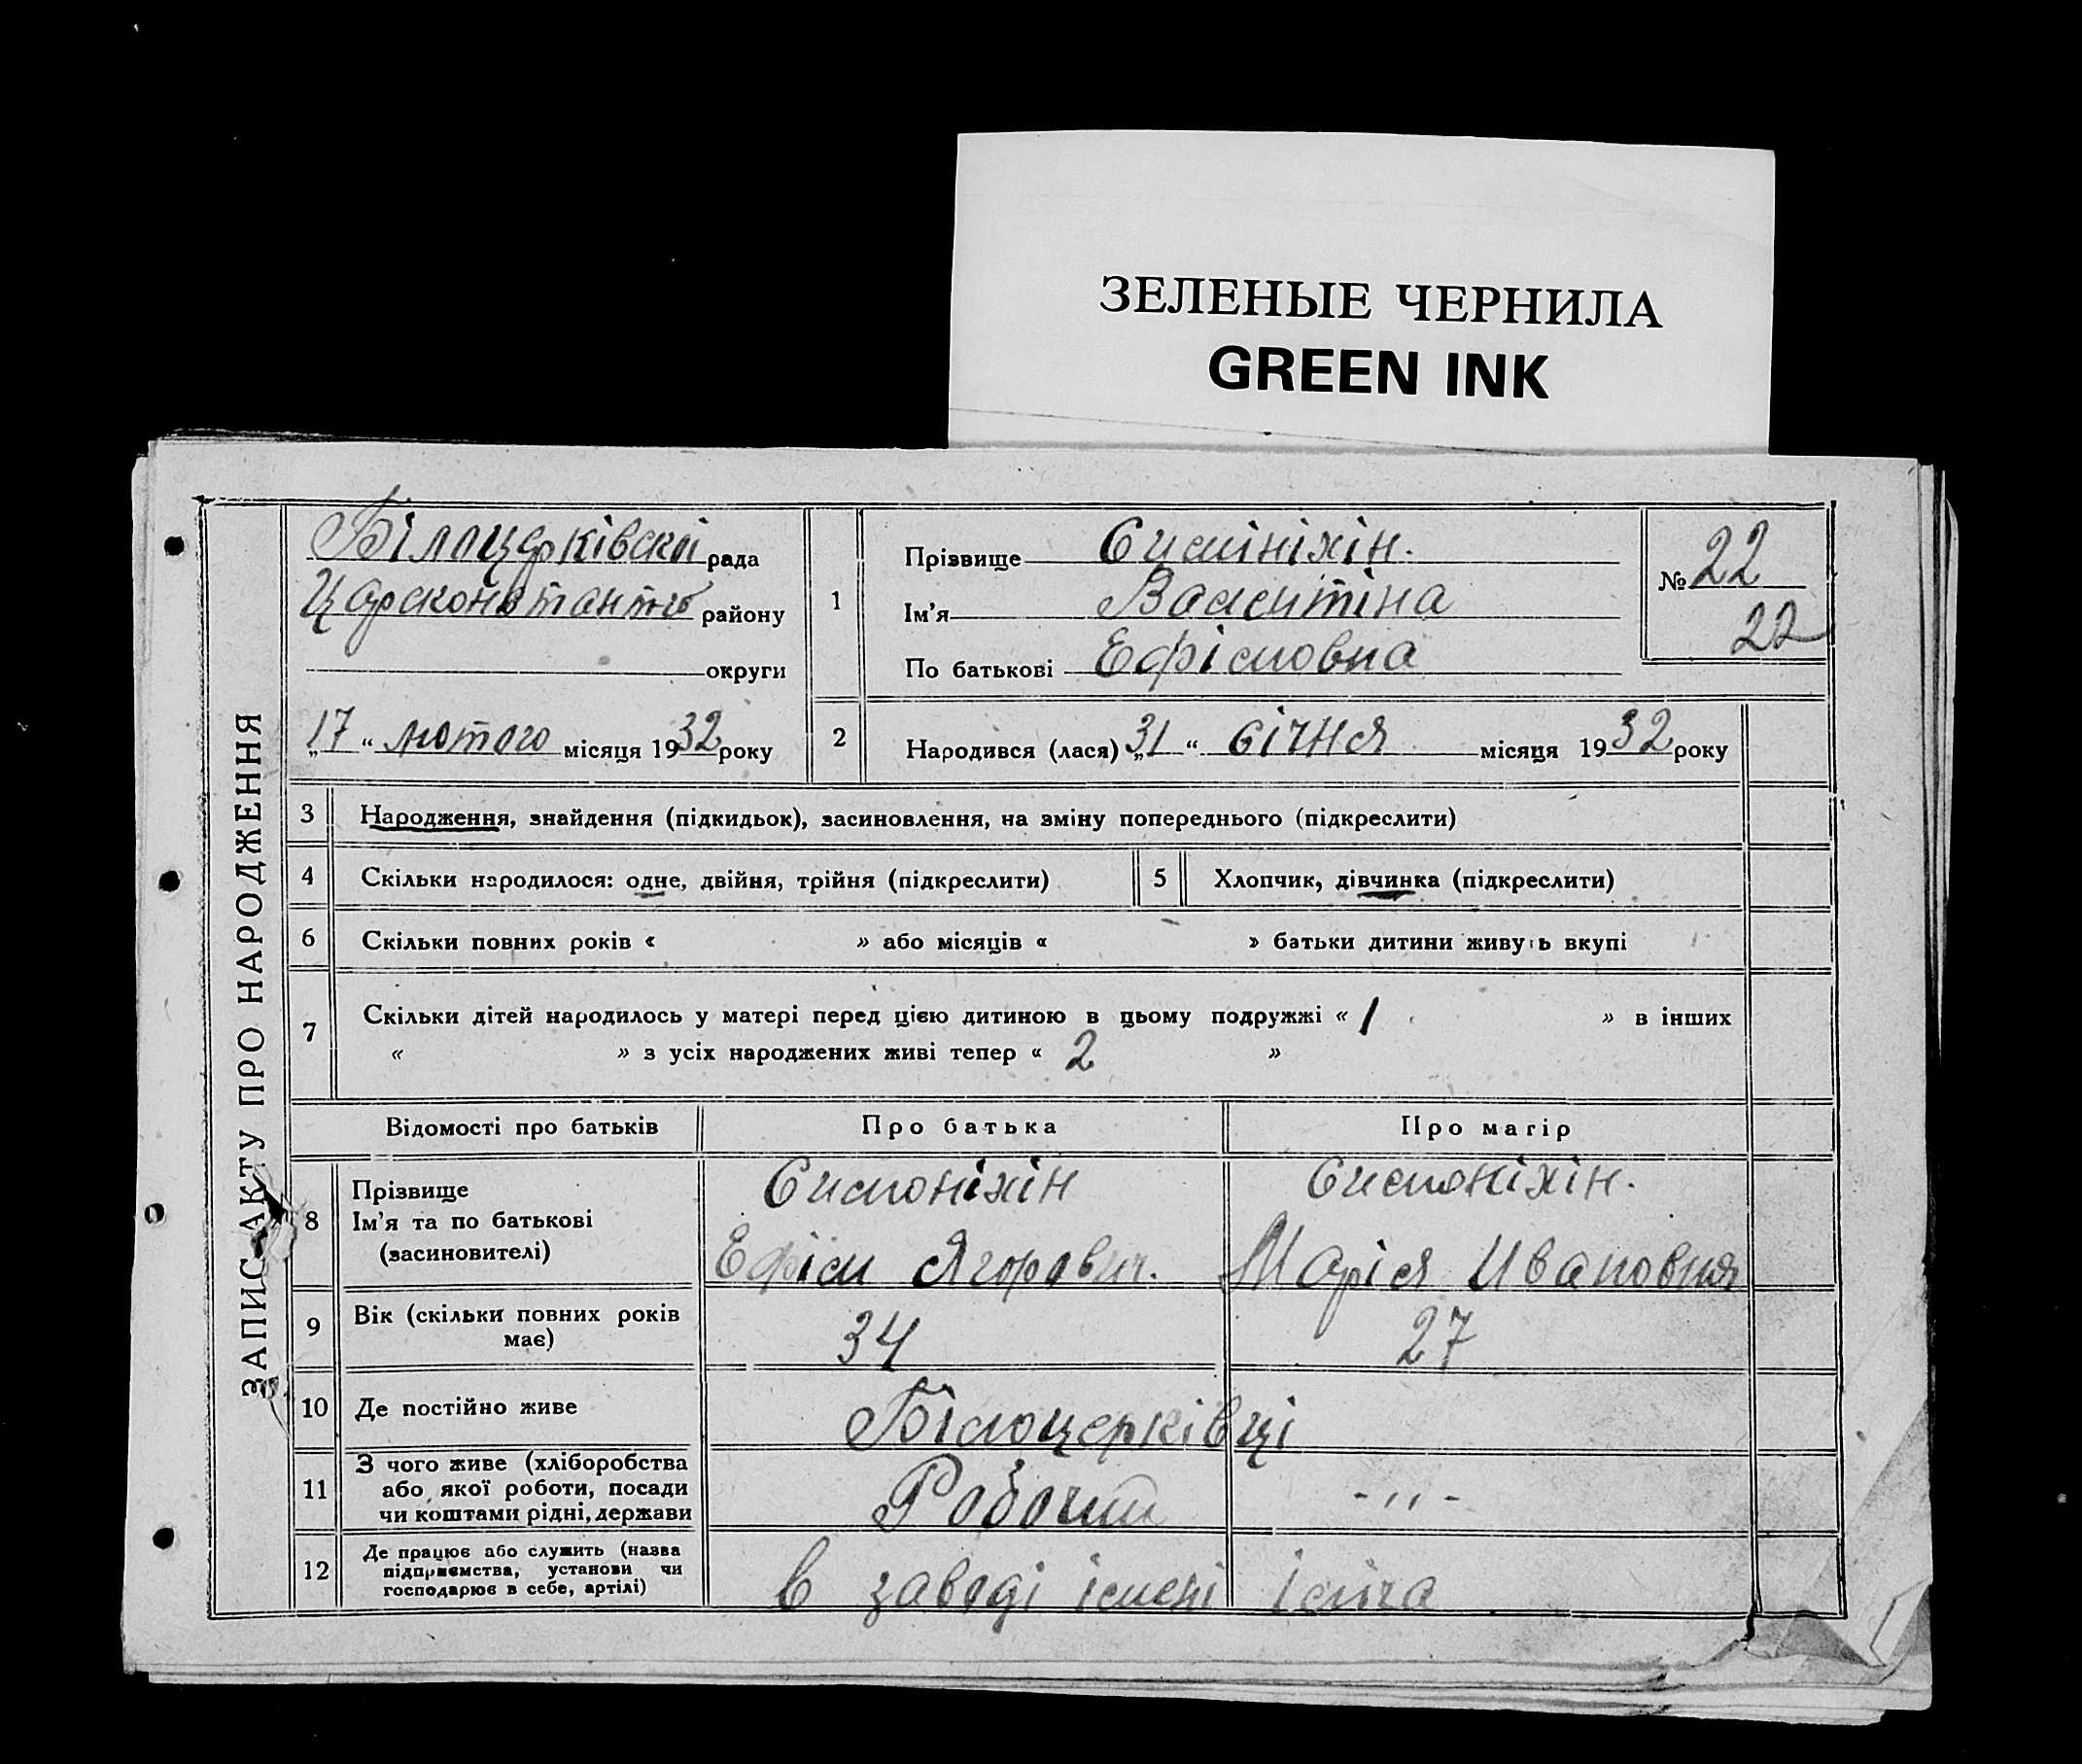 ЗЕЛЕНЫЕ ЧЕРНИЛА
GREEN INK
ЗАПИС АКТУ ПРО НАРОДЖЕННЯ
Білоцерківскої рада
Царсконстантно району
округи
„17“ лютого місяця 1932 року
1
Прізвище
Ім’я Валентіна
По батькові Ефімовна
№ 22
22
2 Народився (лася) „31“ січня місяця 1932 року
3 Народження, знайдення (підкидьок), засиновлення, на зміну попереднього (підкреслити)
4 Скільки народилося: одне, двійня, трійня (підкреслити)
5 Хлопчик, дівчинка (підкреслити)
6 Скільки повних років « » або місяців « » батьки дитини живуть вкупі
7 Скільки дітей народилось у матері перед цією дитиною в цьому подружжі « 1 » в інших
« » з усіх народжених живі тепер « 2 »
Відомості про батьків Про батька Про матір
8 Прізвище Симоніхін Симоніхін.
Ім’я та по батькові
(засиновителі) Ефім Ягорович. Марія Ивановня
9 Вік (скільки повних років
має) 34 27
10 Де постійно живе Білоцерківці
11 З чого живе (хліборобства
або якої роботи, посади
чи коштами рідні, держави Робочий - ,, -
12 Де працює або служить (назва
підприємства, установи чи
господарює в себе, артілі) в заводі імені Іліча